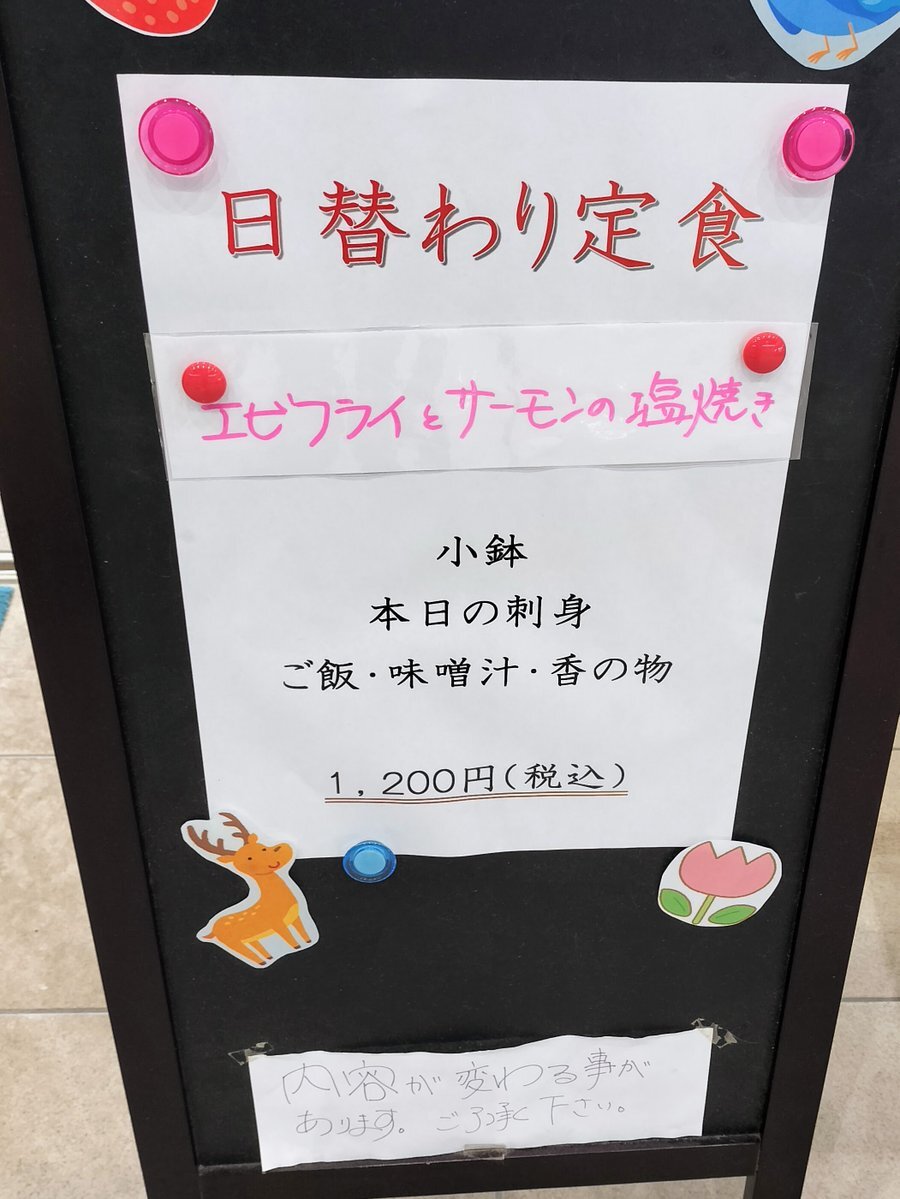 日替わり定食
エビフライとサーモンの塩焼き
小鉢
本日の刺身
ご飯・味噌汁・香の物
1,200円(税込)
内容が変わる事が
あります。ご了承下さい。